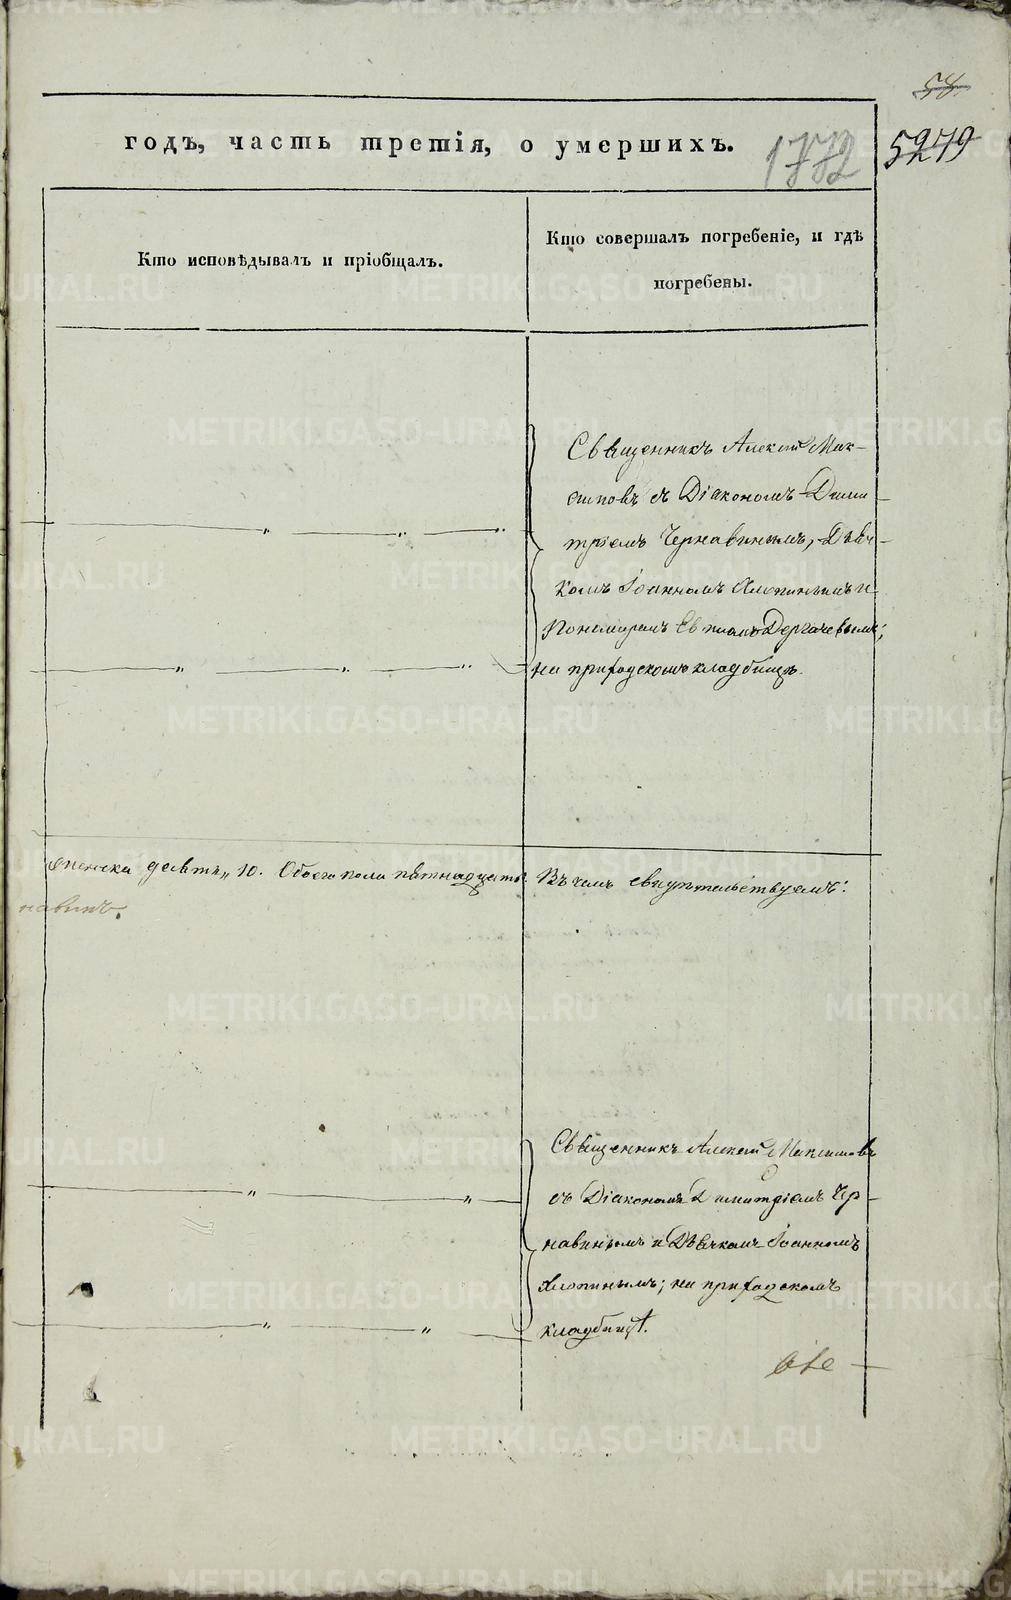 58.
годъ, часть третія, о умершихъ.
1772
5279
Кто исповѣдывалъ и пріобщалъ.
Кто совершалъ погребеніе, и гдѣ
погребены.
Священникъ Алексій Мак-
симовъ съ Діакономъ Дими
тріемъ Чернавинымъ, Дьяч-
комъ Іоанномъ Хлопинымъ и
Пономаремъ Дергачевымъ;
на приходскомъ кладбищѣ.
женска десять „ 10. Обоего пола пятнадцать. Въ чемъ свидѣтельствуемъ:
навинъ.
Священникъ Алексій Максимовъ
съ Діакономъ Димитріемъ Чер-
навинымъ и Дьячкомъ Іоанномъ
Хлопинымъ; на приходскомъ
кладбищѣ.
METRIKI.GASO-URAL.RU